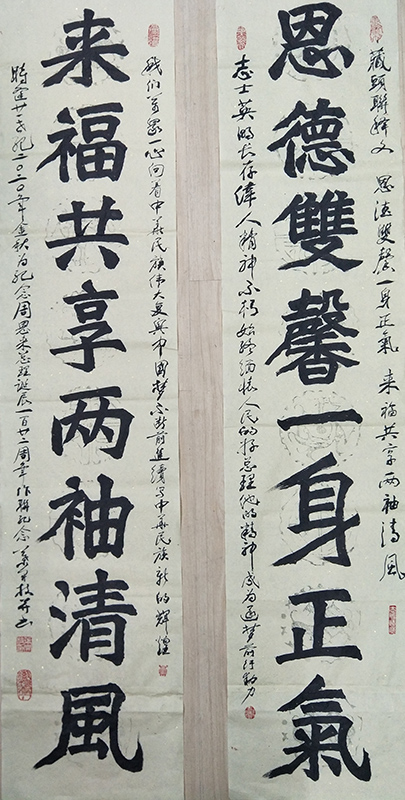 藏頭聯釋文 恩德雙馨一身正氣 来福共享两袖清風
恩德雙馨一身正氣
志士英明长存偉人精神不朽始终缅怀人民的好总理他的精神成为逐梦前行動力
我们万众一心向着中华民族伟大复興中国梦不断前進续写中华民族新的辉煌
来福共享两袖清風
時逢廿一世纪二〇二〇年金秋为纪念周恩来总理誕辰一百廿二周年作聯纪念